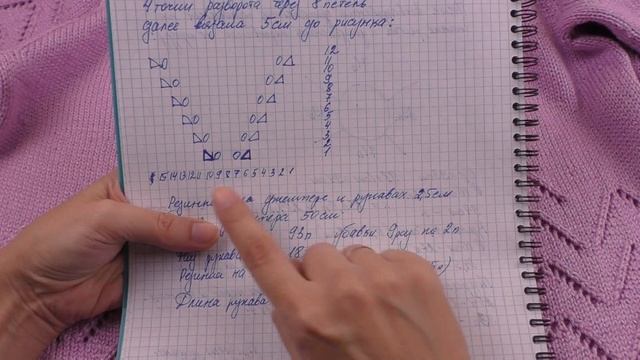 4 точки разворота через 8 петель
далее вязала 5 см до рисунка:
12
11
10
9
8
7
6
5
4
3
2
1
15 14 13 12 11 10 9 8 7 6 5 4 3 2 1
джемпере и рукавах 2,5 см
50 см
93 п убавки 9 раз по 2 п
рукава 18
Резинка на
Длина рукава